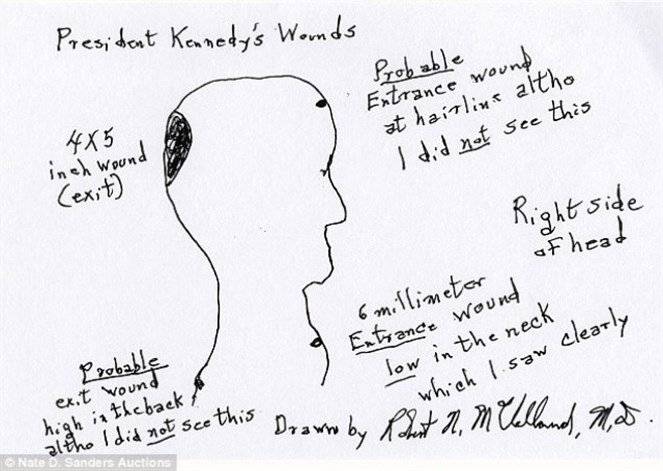 President Kennedy's Wounds
Probable
Entrance wound
at hairline altho
I did not see this
4X5
inch wound
(exit)
Right side
of head
6 millimeter
Entrance wound
low in the neck
which I saw clearly
Probable
exit wound
high in the back
altho I did not see this
Drawn by Robert N. McClelland, M.D.
© Nate D. Sanders Auctions